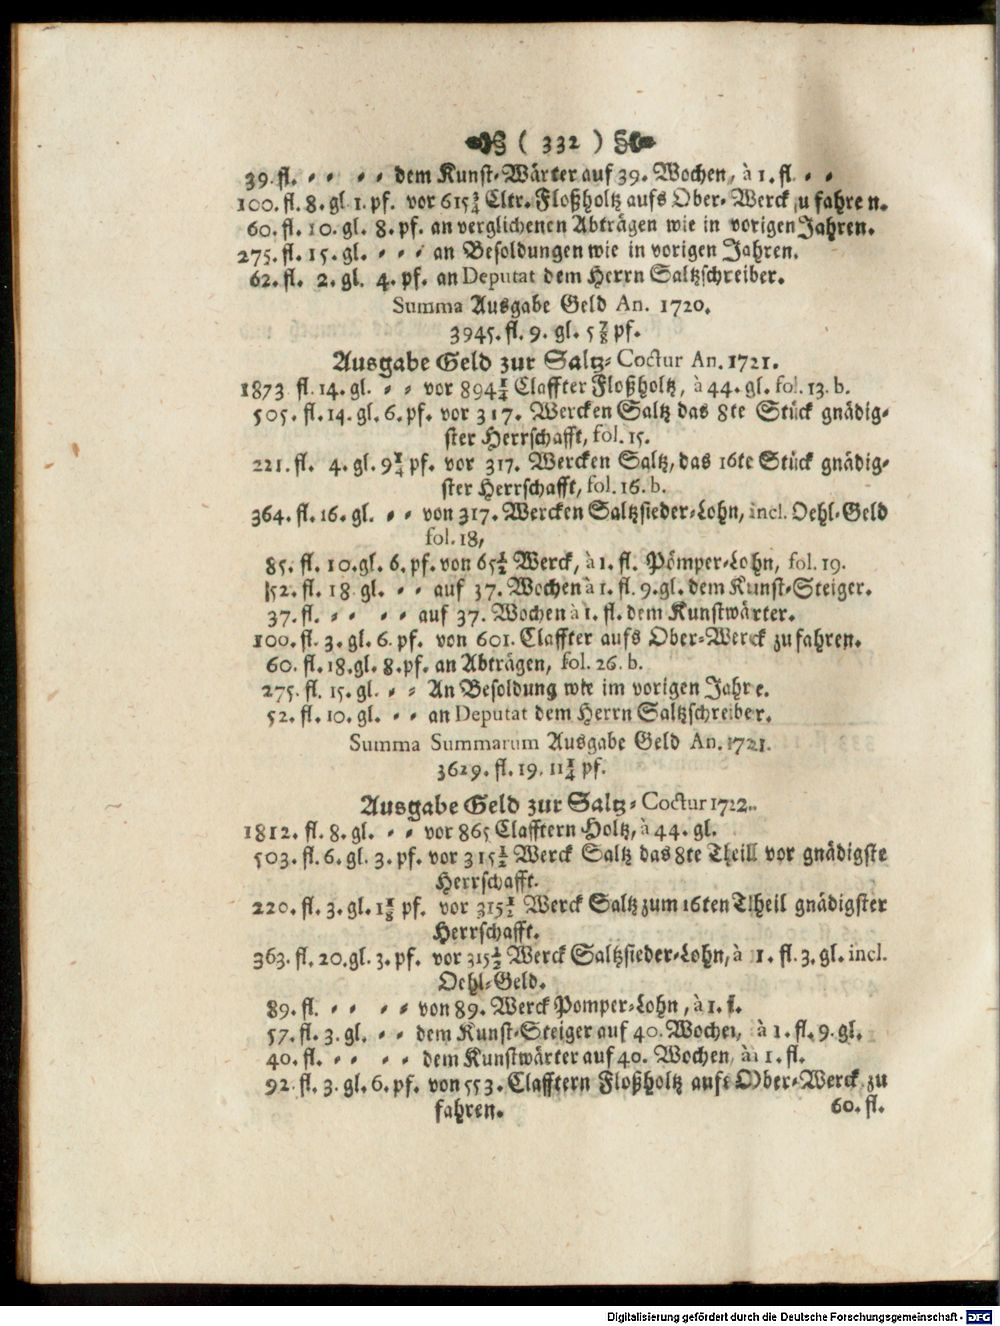 ( 332 )
39. fl. ⸗ ⸗ ⸗ ⸗ dem Kunst⸗Wärter auf 39. Wochen, à 1. fl. ⸗ ⸗
100. fl. 8. gl 1. pf. vor 615¾ Cltr. Floßholtz aufs Ober⸗Werck zu fahren.
60. fl. 10. gl. 8. pf. an verglichenen Abträgen wie in vorigen Jahren.
275. fl. 15. gl. ⸗ ⸗ ⸗ an Besoldungen wie in vorigen Jahren.
62. fl. 2. gl. 4. pf. an Deputat dem Herrn Saltzschreiber.
Summa Ausgabe Geld An. 1720.
3945. fl. 9. gl. 5⅞ pf.
Ausgabe Geld zur Saltz⸗Coctur An. 1721.
1873 fl. 14. gl. ⸗ ⸗ vor 894¼ Claffter Floßholtz, à 44. gl. fol. 13. b.
505. fl. 14. gl. 6. pf. vor 317. Wercken Saltz das 8te Stück gnädig⸗
ster Herrschafft, fol. 15.
221. fl. 4. gl. 9¼ pf. vor 317. Wercken Saltz, das 16te Stück gnädig⸗
ster Herrschafft, fol. 16. b.
364. fl. 16. gl. ⸗ ⸗ von 317. Wercken Saltzsieder⸗Lohn, incl. Oehl⸗Geld
fol. 18,
85. fl. 10. gl. 6. pf. von 65½ Werck, à 1. fl. Pömper⸗Lohn, fol. 19.
52. fl. 18 gl. ⸗ ⸗ auf 37. Wochen à 1. fl. 9. gl. dem Kunst⸗Steiger.
37. fl. ⸗ ⸗ ⸗ ⸗ auf 37. Wochen à 1. fl. dem Kunstwärter.
100. fl. 3. gl. 6. pf. von 601. Claffter aufs Ober⸗Werck zu fahren.
60. fl. 18. gl. 8. pf. an Abträgen, fol. 26. b.
275. fl. 15. gl. ⸗ ⸗ An Besoldung wie im vorigen Jahre.
52. fl. 10. gl. ⸗ ⸗ an Deputat dem Herrn Saltzschreiber.
Summa Summarum Ausgabe Geld An. 1721.
3629. fl. 19. 11¼ pf.
Ausgabe Geld zur Saltz⸗Coctur 1722.
1812. fl. 8. gl. ⸗ ⸗ vor 865 Clafftern Holtz, à 44. gl.
503. fl. 6. gl. 3. pf. vor 315½ Werck Saltz das 8te Theill vor gnädigste
Herrschafft.
220. fl. 3. gl. 1⅛ pf. vor 315½ Werck Saltz zum 16ten Theil gnädigster
Herrschafft.
363. fl. 20. gl. 3. pf. vor 315½ Werck Saltzsieder⸗Lohn, à 1. fl. 3. gl. incl.
Oehl⸗Geld.
89. fl. ⸗ ⸗ ⸗ ⸗ von 89. Werck Pomper⸗Lohn, à 1. f.
57. fl. 3. gl. ⸗ ⸗ dem Kunst⸗Steiger auf 40. Wochen, à 1. fl. 9. gl.
40. fl. ⸗ ⸗ ⸗ ⸗ dem Kunstwärter auf 40. Wochen, à 1. fl.
92 fl. 3. gl. 6. pf. von 553. Clafftern Floßholtz aufs Ober⸗Werck zu
fahren.
60. fl.
Digitalisierung gefördert durch die Deutsche Forschungsgemeinschaft - DFG